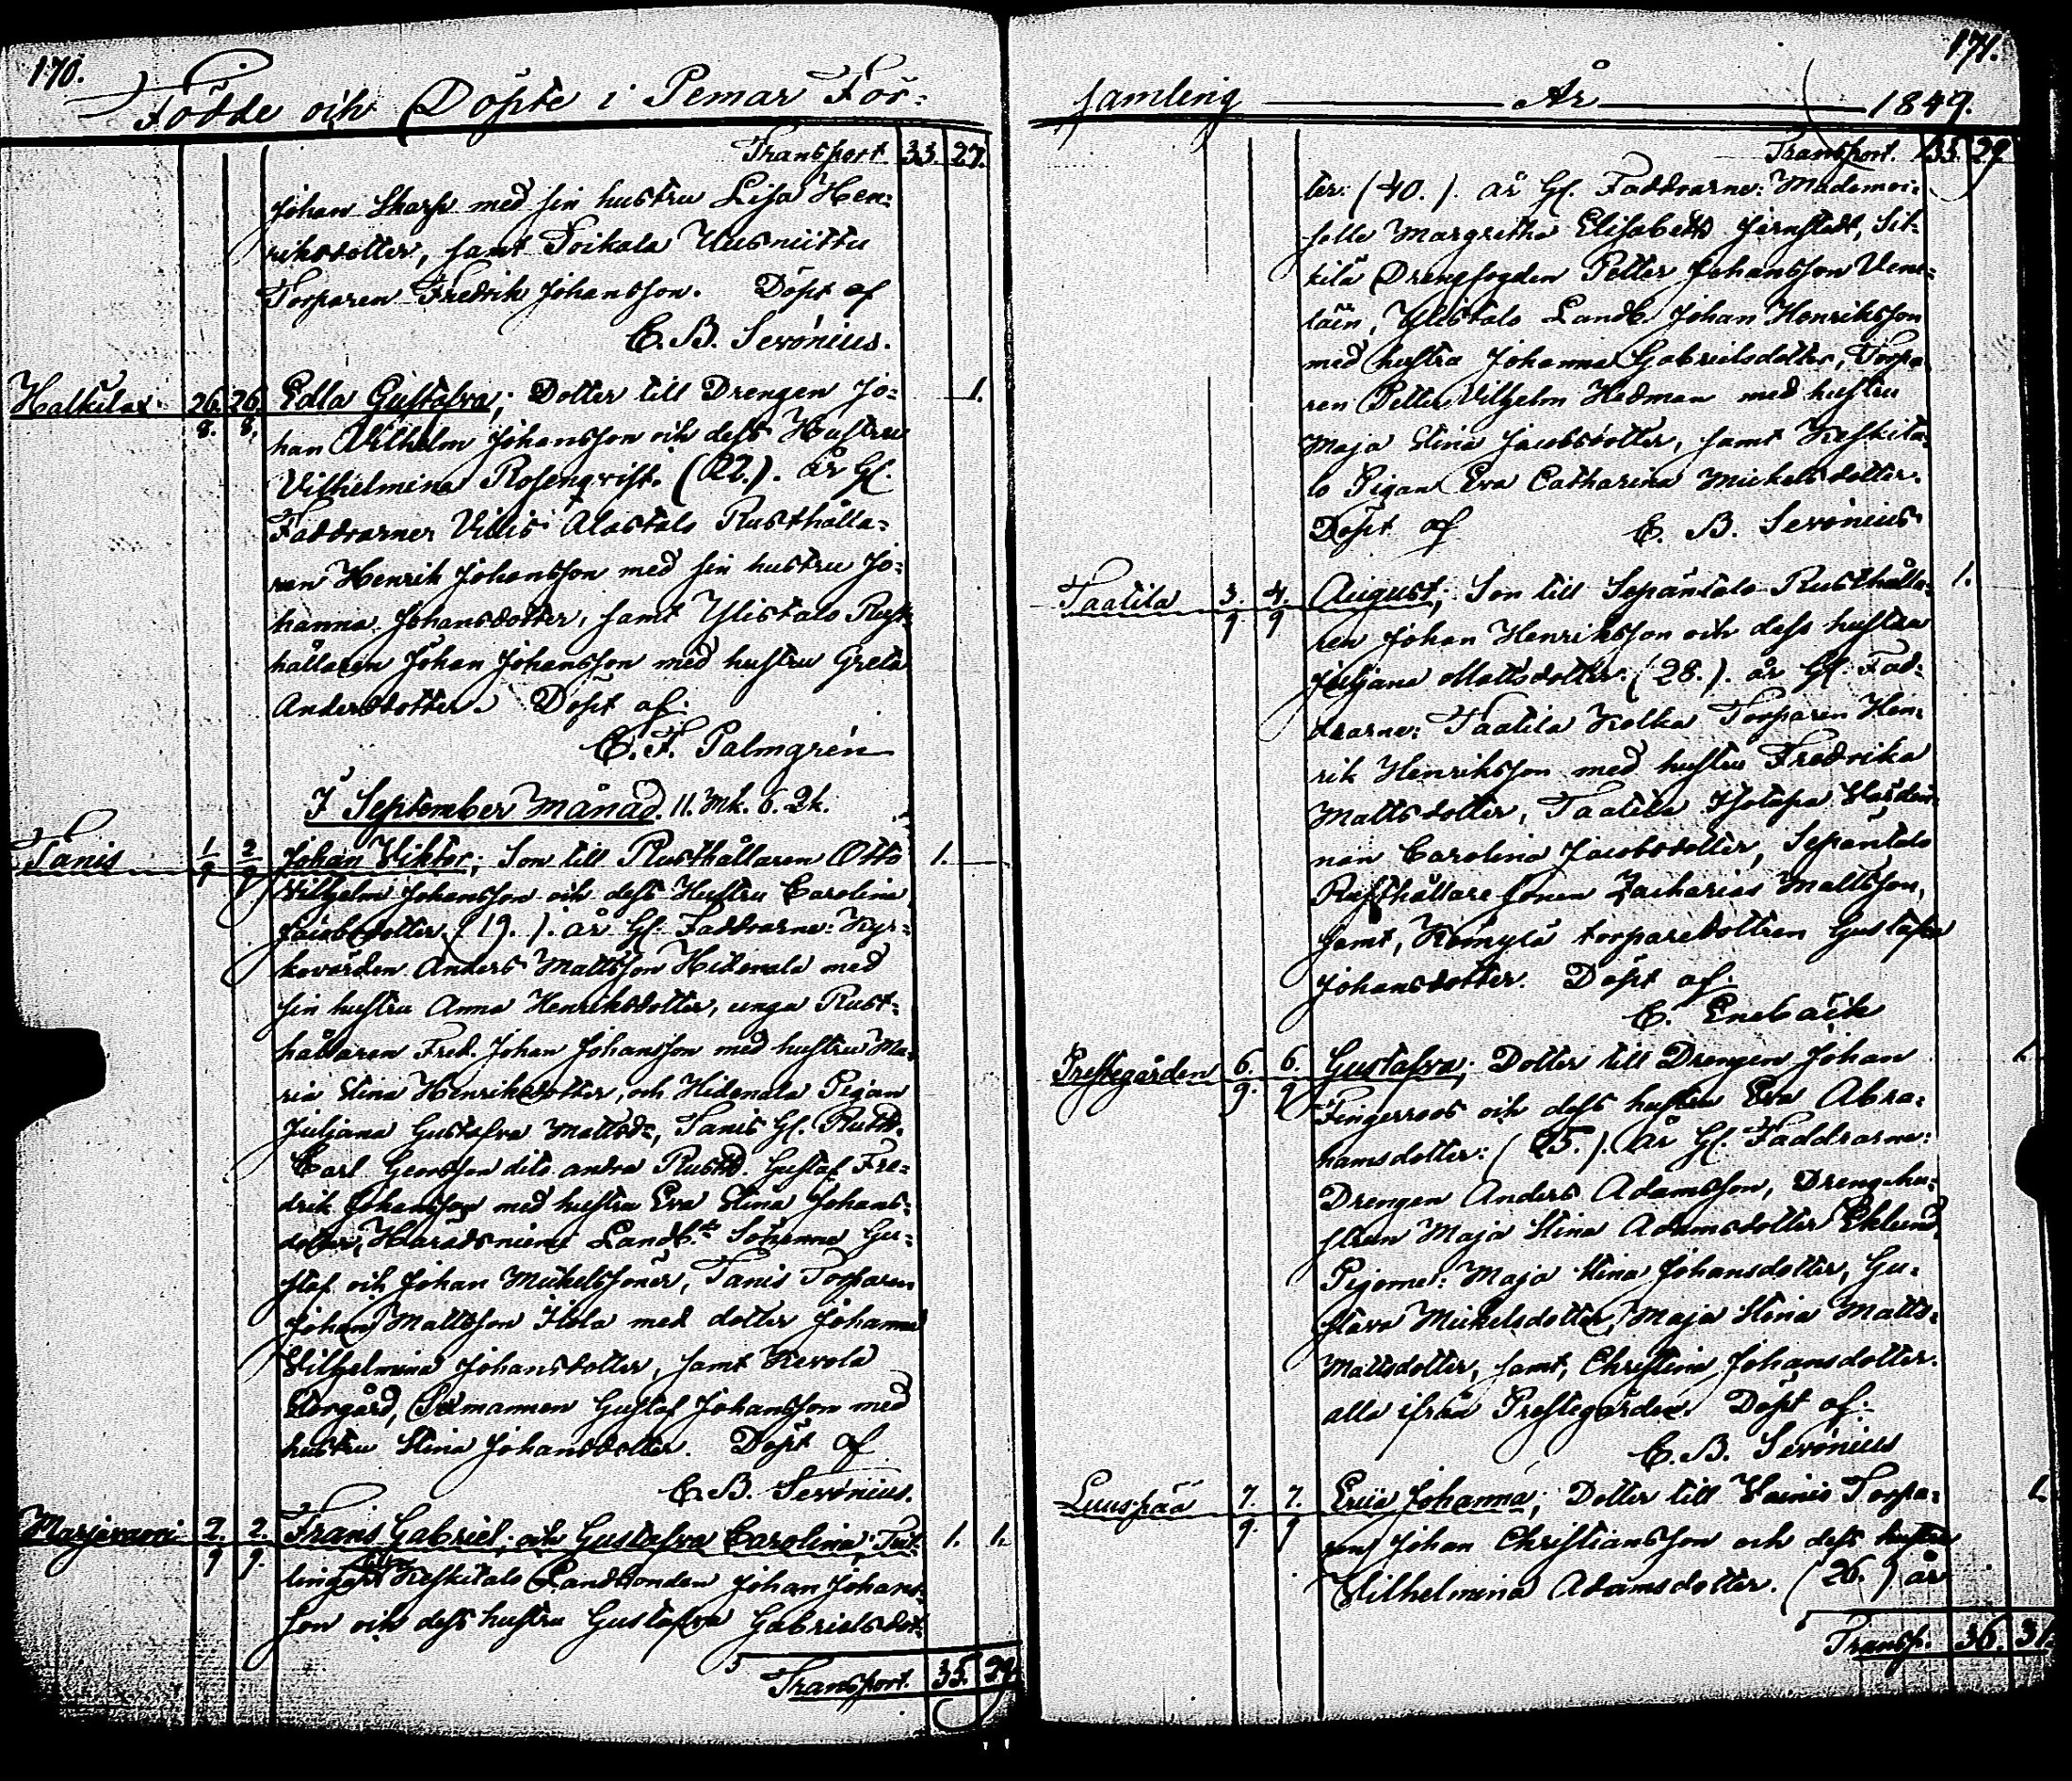 170.
Födde och Döpte i Pemar För-
Transport 33. 27.
Johan Skarp med sin hustru Lisa Hen-
riksdotter, samt Toikala Uusniittu
Torparen Fredrik Johansson. Döpt af
C. B. Serönius.
Halkilax 26. 26. Edla Gustafva; Dotter till Drengen Jo- 1.
8. 8. han Vilhelm Johansson och dess Hustru
Vilhelmina Rosenqvist. (22.). år Gl.
Faddrarne: Villis Alastalo Rusthålla-
ren Henrik Johansson med sin hustru Jo-
hanna Johansdotter, samt Ylistalo Rust-
hållaren Johan Johansson med hustru Greta
Andersdotter. Döpt af:
C. F. Palmgrén
I September Månad. 11. Mk. 6. Qk.
Tanis 1/9 2/9 Johan Viktor; Son till Rusthållaren Otto 1.
Vilhelm Johansson och dess Hustru Carolina
Jacobsdotter (19.). år Gl. Faddrarne: Kyr-
kovärden Anders Mattsson Hidenala med
sin hustru Anna Henriksdotter, unga Rust-
hållaren Fred. Johan Johansson med hustru Ma-
ria Stina Henriksdotter, och Hidenala Pigan
Juliana Gustafva Mattsd:, Tanis Gl. Rusth.
Carl Georsson dito andra Rusth. Gustaf Fre-
drik Johansson med hustru Eva Stina Johans-
dotter, Haradsniemi Landb:ds Sönerna Gu-
staf och Johan Mickelssöner, Tanis Torparen
Johan Mattsson Ilola med dotter Johanna
Vilhelmina Johansdotter, samt Kevola
Storgård, Gustaf Johansson med
hustru Stina Johansdotter. Döpt af
C. B. Serönius.
Marjavuori 2. 2. Frans Gabriel; och Gustafva Carolina; Tvil- 1. 1.
9 9. lingar till Keskitalo Landbonden Johan Johans-
son och dess hustru Gustafva Gabrielsdot-
Transport. 35. 29.
171.
samling År 1849.
Transport. 35. 29
ter: (40.). år Gl. Faddrarne: Mademoi-
selle Margretha Elisabeth Jernstedt, Sit-
kilä Drengfogden Petter Johansson Vene-
läin, Ylistalo Landb. Johan Henriksson
med hustru Johanna Gabrielsdotter, Torpa-
ren Petter Vilhelm Hedman med hustru
Maja Stina Jacobsdotter, samt Keskita-
lo Pigan Eva Catharina Mickelsdotter.
Döpt af C. B. Serönius
Taatila 3. 4. August; Son till Sepäntalo Rusthålla- 1.
9 9 ren Johan Henriksson och dess hustru
Juliana Mattsdotter. (28.). år Gl. Fad-
drarne: Taatila Kolka Torparen Hen-
rik Henriksson med hustru Fredrika
Mattsdotter, Taatila
nan Carolina Jacobsdotter, Sepäntalo
Rusthållare sonen Zacharias Mattsson,
samt, Kömylä torparedottren Gustafva
Johansdotter. Döpt af:
C. Enebäck
Prestegården 6. 6. Gustafva; Dotter till Drengen Johan 1.
9. 9 Fingerroos och dess hustru Eva Abra-
hamsdotter: (25.). år Gl. Faddrarne:
Drengen Anders Adamsson, Drenghu-
strun Maja Stina Adamsdotter Eklund,
Pigorne: Maja Stina Johansdotter, Gu-
stava Mickelsdotter, Maja Stina Matts-
Mattsdotter, samt, Christina Johansdotter.
alla ifrån Prestegården. Döpt af:
C. B. Serönius
Luuspää 7. 7. Johanna; Dotter till Vainio Torpa- 1.
9. 9 ren Johan Christiansson och dess hustru
Vilhelmina Adamsdotter. (26.) år
Transp. 36. 31.